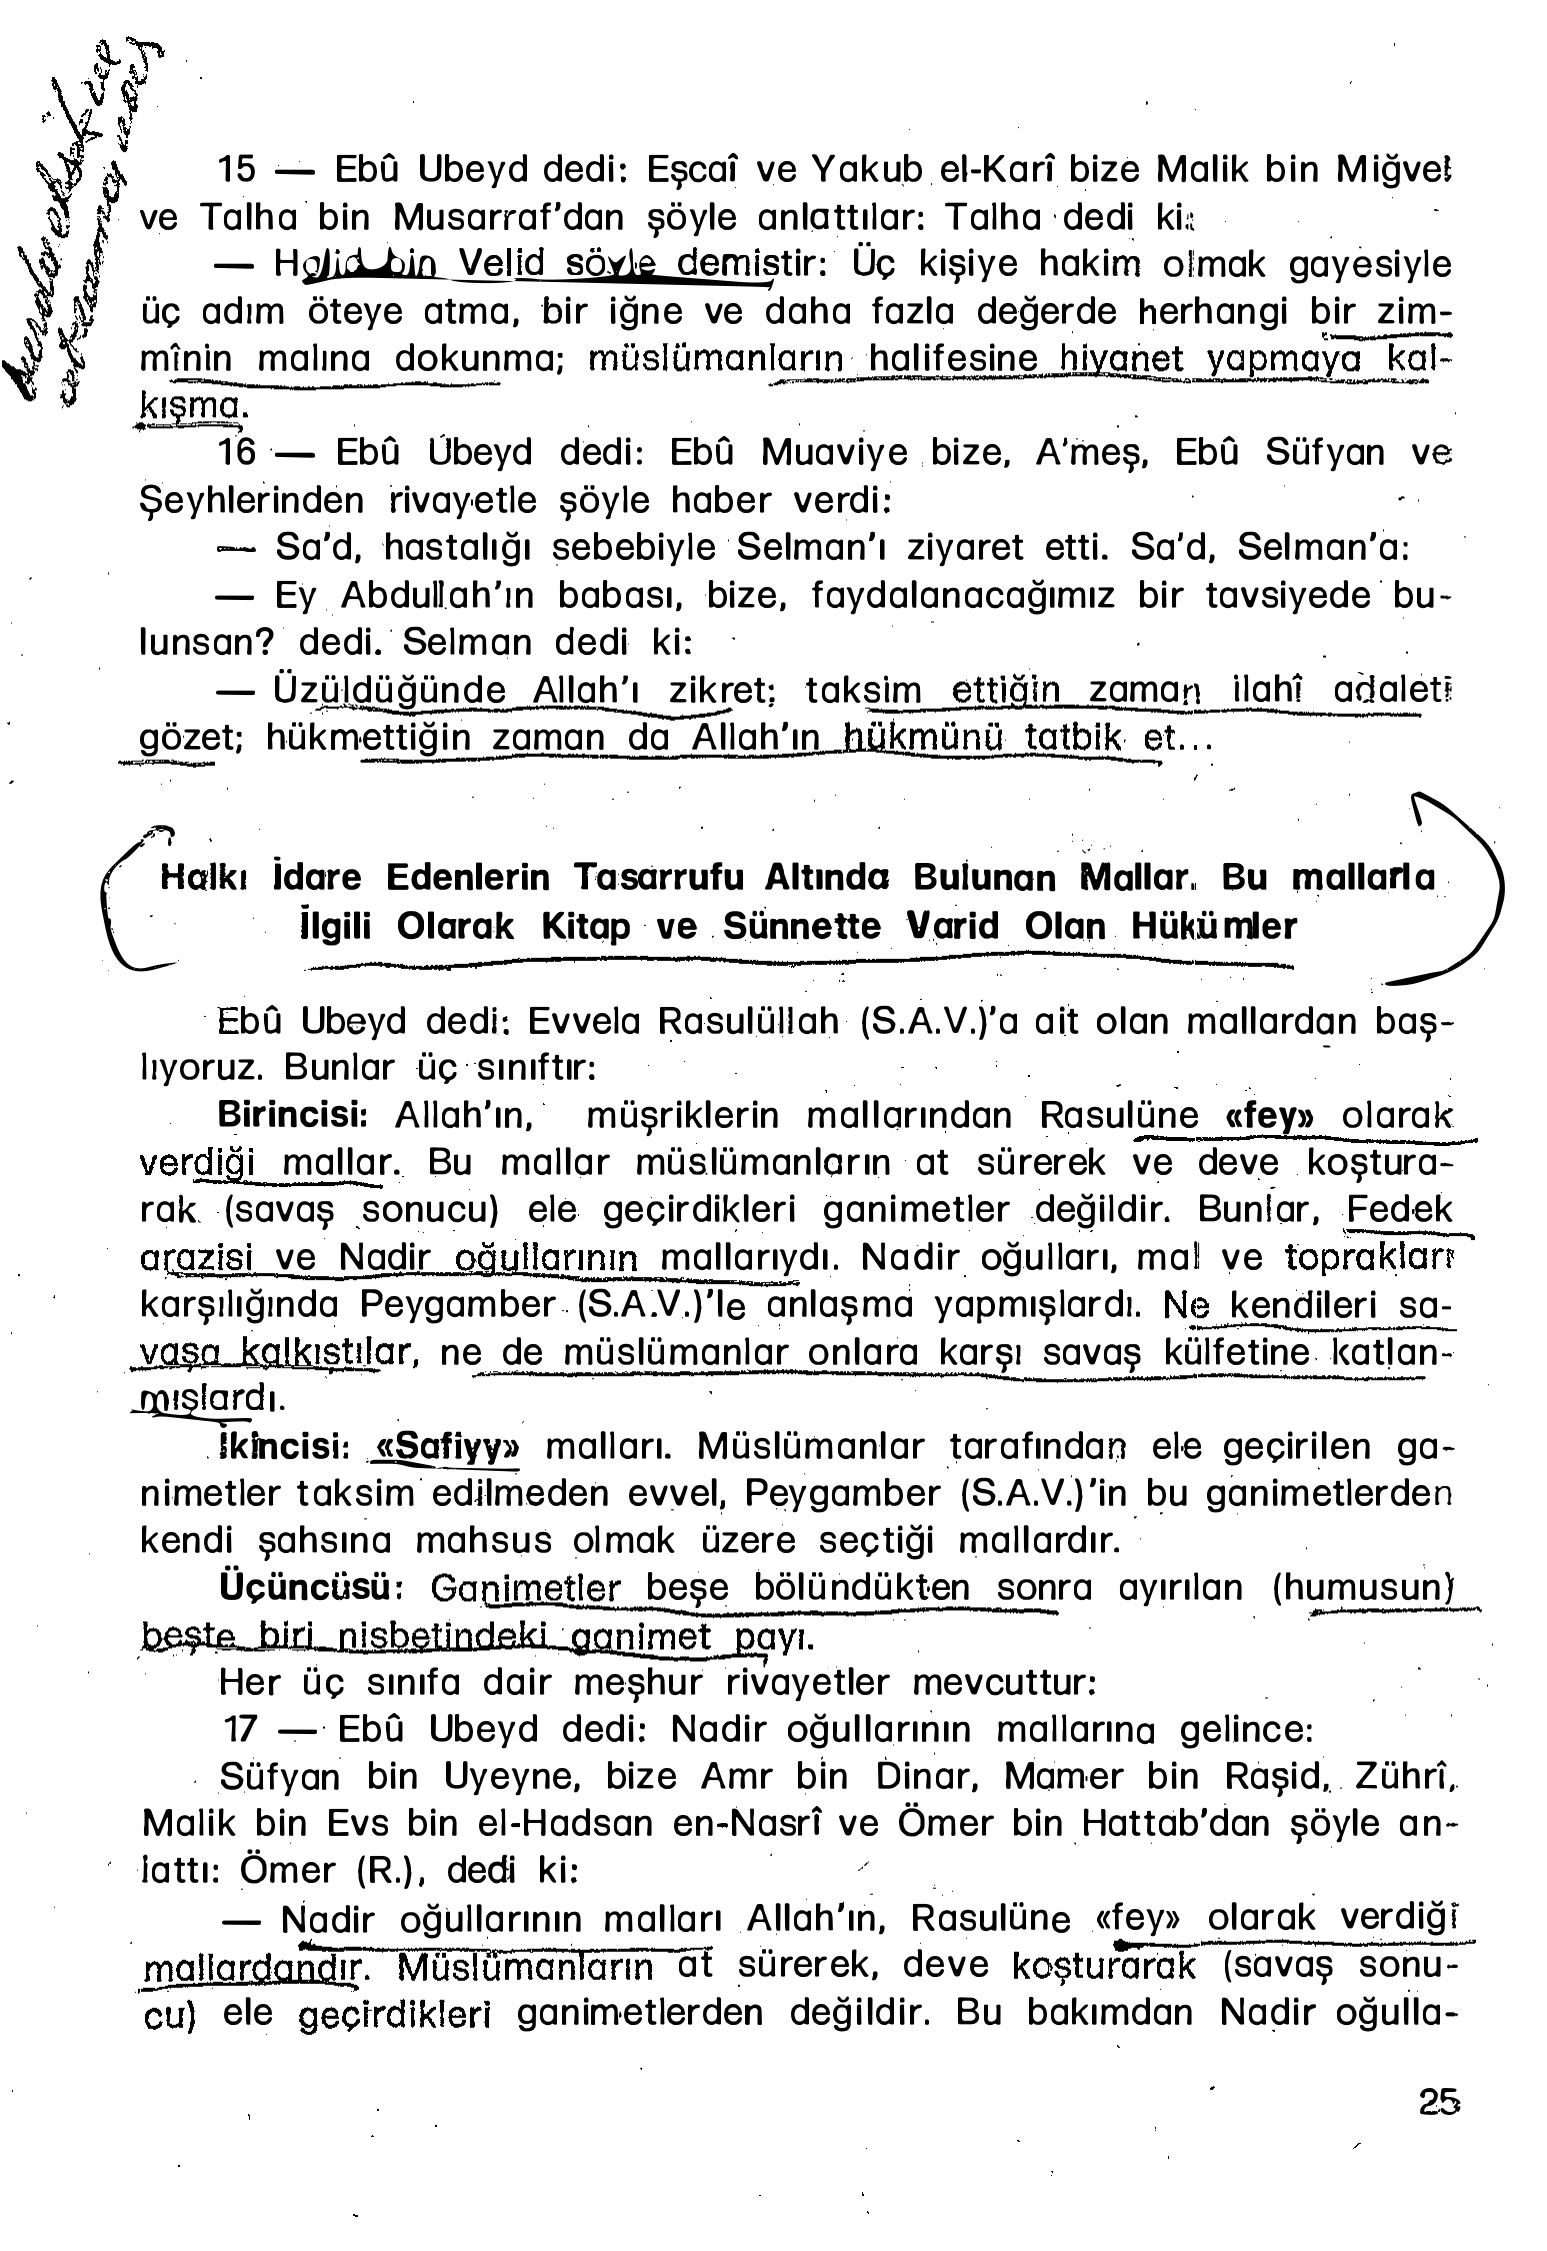 15 — Ebû Ubeyd dedi: Eşcaî ve Yakub el-Karî bize Malik bin Miğvel
ve Talha bin Musarraf'dan şöyle anlattılar: Talha dedi ki:
— Halid bin Velid söyle demiştir: Üç kişiye hakim olmak gayesiyle
üç adım öteye atma, bir iğne ve daha fazla değerde herhangi bir zim-
mînin malına dokunma; müslümanların halifesine hiyanet yapmaya kal-
kışma.
16 — Ebû Übeyd dedi: Ebû Muaviye bize, A'meş, Ebû Süfyan ve
Şeyhlerinden rivayetle şöyle haber verdi:
— Sa'd, hastalığı sebebiyle Selman'ı ziyaret etti. Sa'd, Selman'a:
— Ey Abdullah'ın babası, bize, faydalanacağımız bir tavsiyede bu-
lunsan? dedi. Selman dedi ki:
— Üzüldüğünde Allah'ı zikret; taksim ettiğin zaman ilahî adaleti
gözet; hükmettiğin zaman da Allah'ın hükmünü tatbik et...
Halkı İdare Edenlerin Tasarrufu Altında Bulunan Mallar. Bu mallarla
İlgili Olarak Kitap ve Sünnette Varid Olan Hükümler
Ebû Ubeyd dedi: Evvela Rasulüllah (S.A.V.)'a ait olan mallardan baş-
lıyoruz. Bunlar üç sınıftır:
Birincisi: Allah'ın, müşriklerin mallarından Rasulüne «fey» olarak
verdiği mallar. Bu mallar müslümanların at sürerek ve deve koştura-
rak (savaş sonucu) ele geçirdikleri ganimetler değildir. Bunlar, Fedek
arazisi ve Nadir oğullarının mallarıydı. Nadir oğulları, mal ve toprakları
karşılığında Peygamber (S.A.V.)'le anlaşma yapmışlardı. Ne kendileri sa-
vaşa kalkıştılar, ne de müslümanlar onlara karşı savaş külfetine katlan-
mışlardı.
İkincisi: «Safiyy» malları. Müslümanlar tarafından ele geçirilen ga-
nimetler taksim edilmeden evvel, Peygamber (S.A.V.)'in bu ganimetlerden
kendi şahsına mahsus olmak üzere seçtiği mallardır.
Üçüncüsü: Ganimetler beşe bölündükten sonra ayırılan (humusun)
beşte biri nisbetindeki ganimet payı.
Her üç sınıfa dair meşhur rivayetler mevcuttur:
17 — Ebû Ubeyd dedi: Nadir oğullarının mallarına gelince:
Süfyan bin Uyeyne, bize Amr bin Dinar, Mamer bin Raşid, Zührî,
Malik bin Evs bin el-Hadsan en-Nasrî ve Ömer bin Hattab'dan şöyle an-
lattı: Ömer (R.), dedi ki:
— Nadir oğullarının malları Allah'ın, Rasulüne «fey» olarak verdiği
mallardandır. Müslümanların at sürerek, deve koşturarak (savaş sonu-
cu) ele geçirdikleri ganimetlerden değildir. Bu bakımdan Nadir oğulla-
25